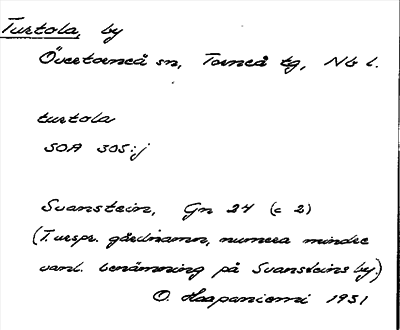 Turtola, by
Övertorneå sn, Torneå tg, Nb l.
turtola
SOA 305:j
Svanstein, Gn 24 (c 2)
(T. urspr. gårdnamn, numera mindre
vanl. benämning på Svansteins by.)
O. Haapaniemi 1931